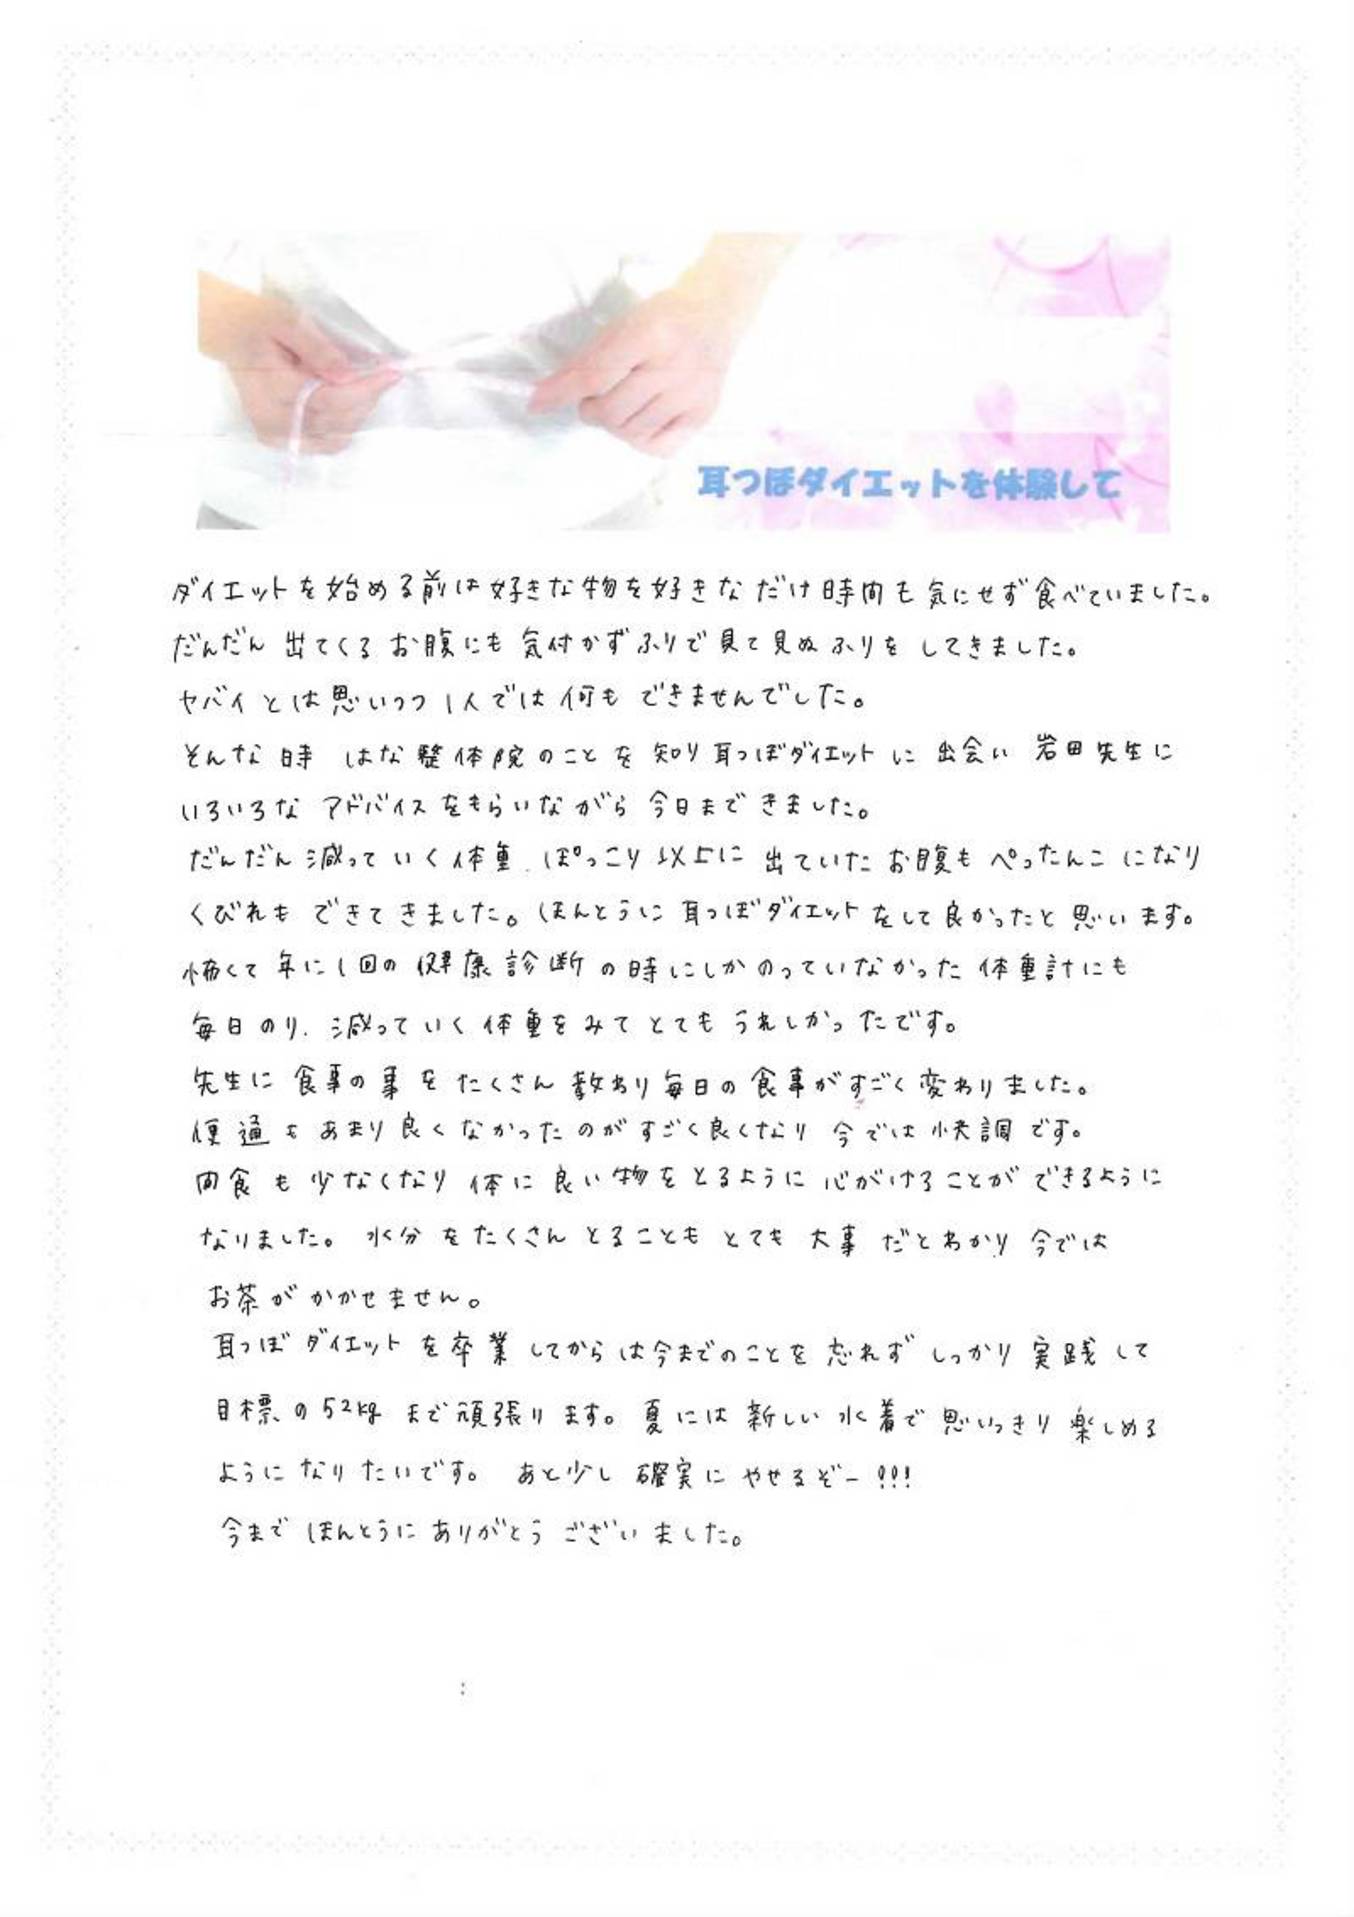 耳つぼダイエットを体験して
ダイエットを始める前は好きな物を好きなだけ時間も気にせず食べていました。
だんだん出てくるお腹にも気付かずふりで見て見ぬふりをしてきました。
ヤバイとは思いつつ1人では何もできませんでした。
そんな時 はな整体院のことを知り耳つぼダイエットに出会い 岩田先生に
いろいろなアドバイスをもらいながら今日まできました。
だんだん減っていく体重、ぽっこり以上に出ていたお腹もぺったんこになり
くびれもできてきました。ほんとうに耳つぼダイエットをして良かったと思います。
怖くて年に1回の健康診断の時にしかのっていなかった体重計にも
毎日のり、減っていく体重をみてとてもうれしかったです。
先生に食事の事をたくさん教わり毎日の食事がすごく変わりました。
便通もあまり良くなかったのがすごく良くなり今では快調です。
間食も少なくなり体に良い物をとるように心がけることができるように
なりました。水分をたくさんとることもとても大事だとわかり今では
お茶がかかせません。
耳つぼダイエットを卒業してからは今までのことを忘れずしっかり実践して
目標の52kgまで頑張ります。夏には新しい水着で思いっきり楽しめる
ようになりたいです。あと少し確実にやせるぞー!!!
今までほんとうにありがとうございました。